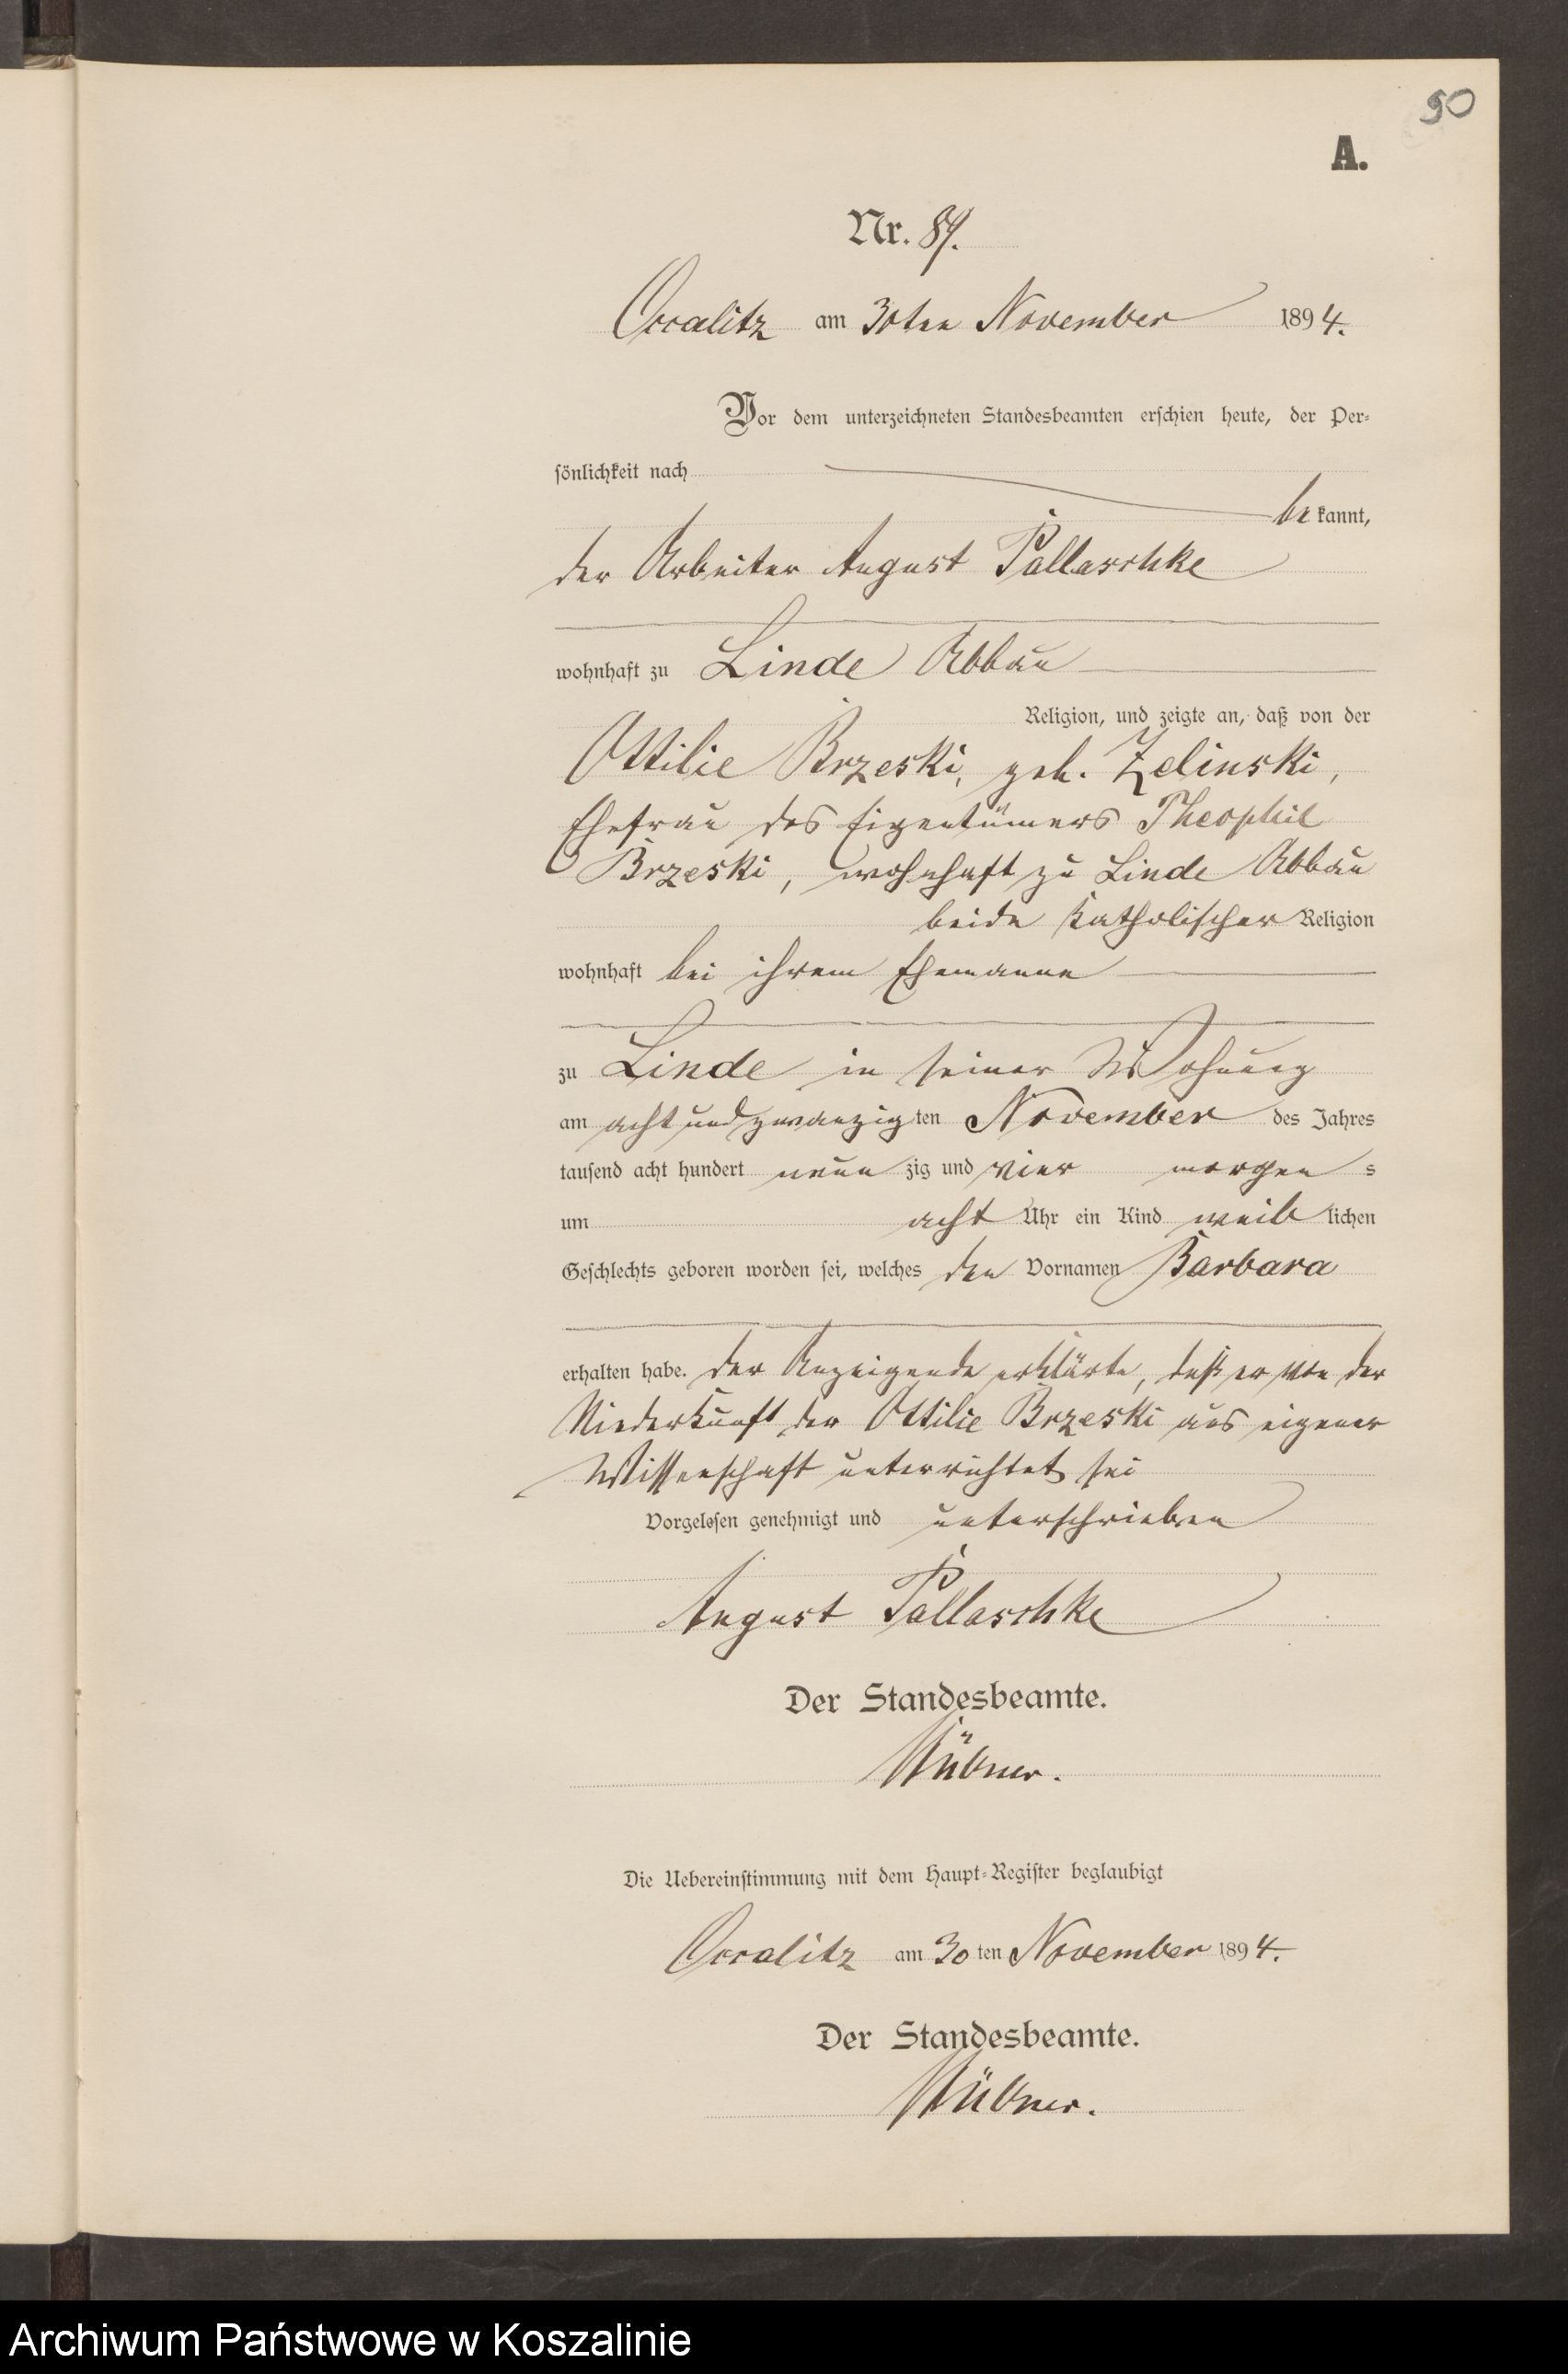 90
A.
Nr. 89.
Occalitz am 30ten November 1894.
Vor dem unterzeichneten Standesbeamten erschien heute, der Per-
sönlichkeit nach
be kannt,
der Arbeiter August Pallaschke
wohnhaft zu Linde Abbau
Religion, und zeigte an, daß von der
Ottilie Brzeski, geb. Zelinski,
Ehefrau des Eigentümers Theophil
Brzeski, wohnhaft zu Linde Abbau
beide katholischer Religion
wohnhaft bei ihrem Ehemanne
zu Linde in seiner Wohnung
am acht und zwanzig ten November des Jahres
tausend acht hundert neun zig und vier morgen s
um acht Uhr ein Kind weib lichen
Geschlechts geboren worden sei, welches den Vornamen Barbara
erhalten habe. Der Anzeigende erklärte, daß er von der
Niederkunft der Ottilie Brzeski aus eigener
Wissenschaft unterrichtet sei
Vorgelesen genehmigt und unterschrieben
August Pallaschke
Der Standesbeamte.
Hübner.
Die Uebereinstimmung mit dem Haupt-Register beglaubigt
Occalitz am 30 ten November 1894.
Der Standesbeamte.
Hübner.
Archiwum Państwowe w Koszalinie